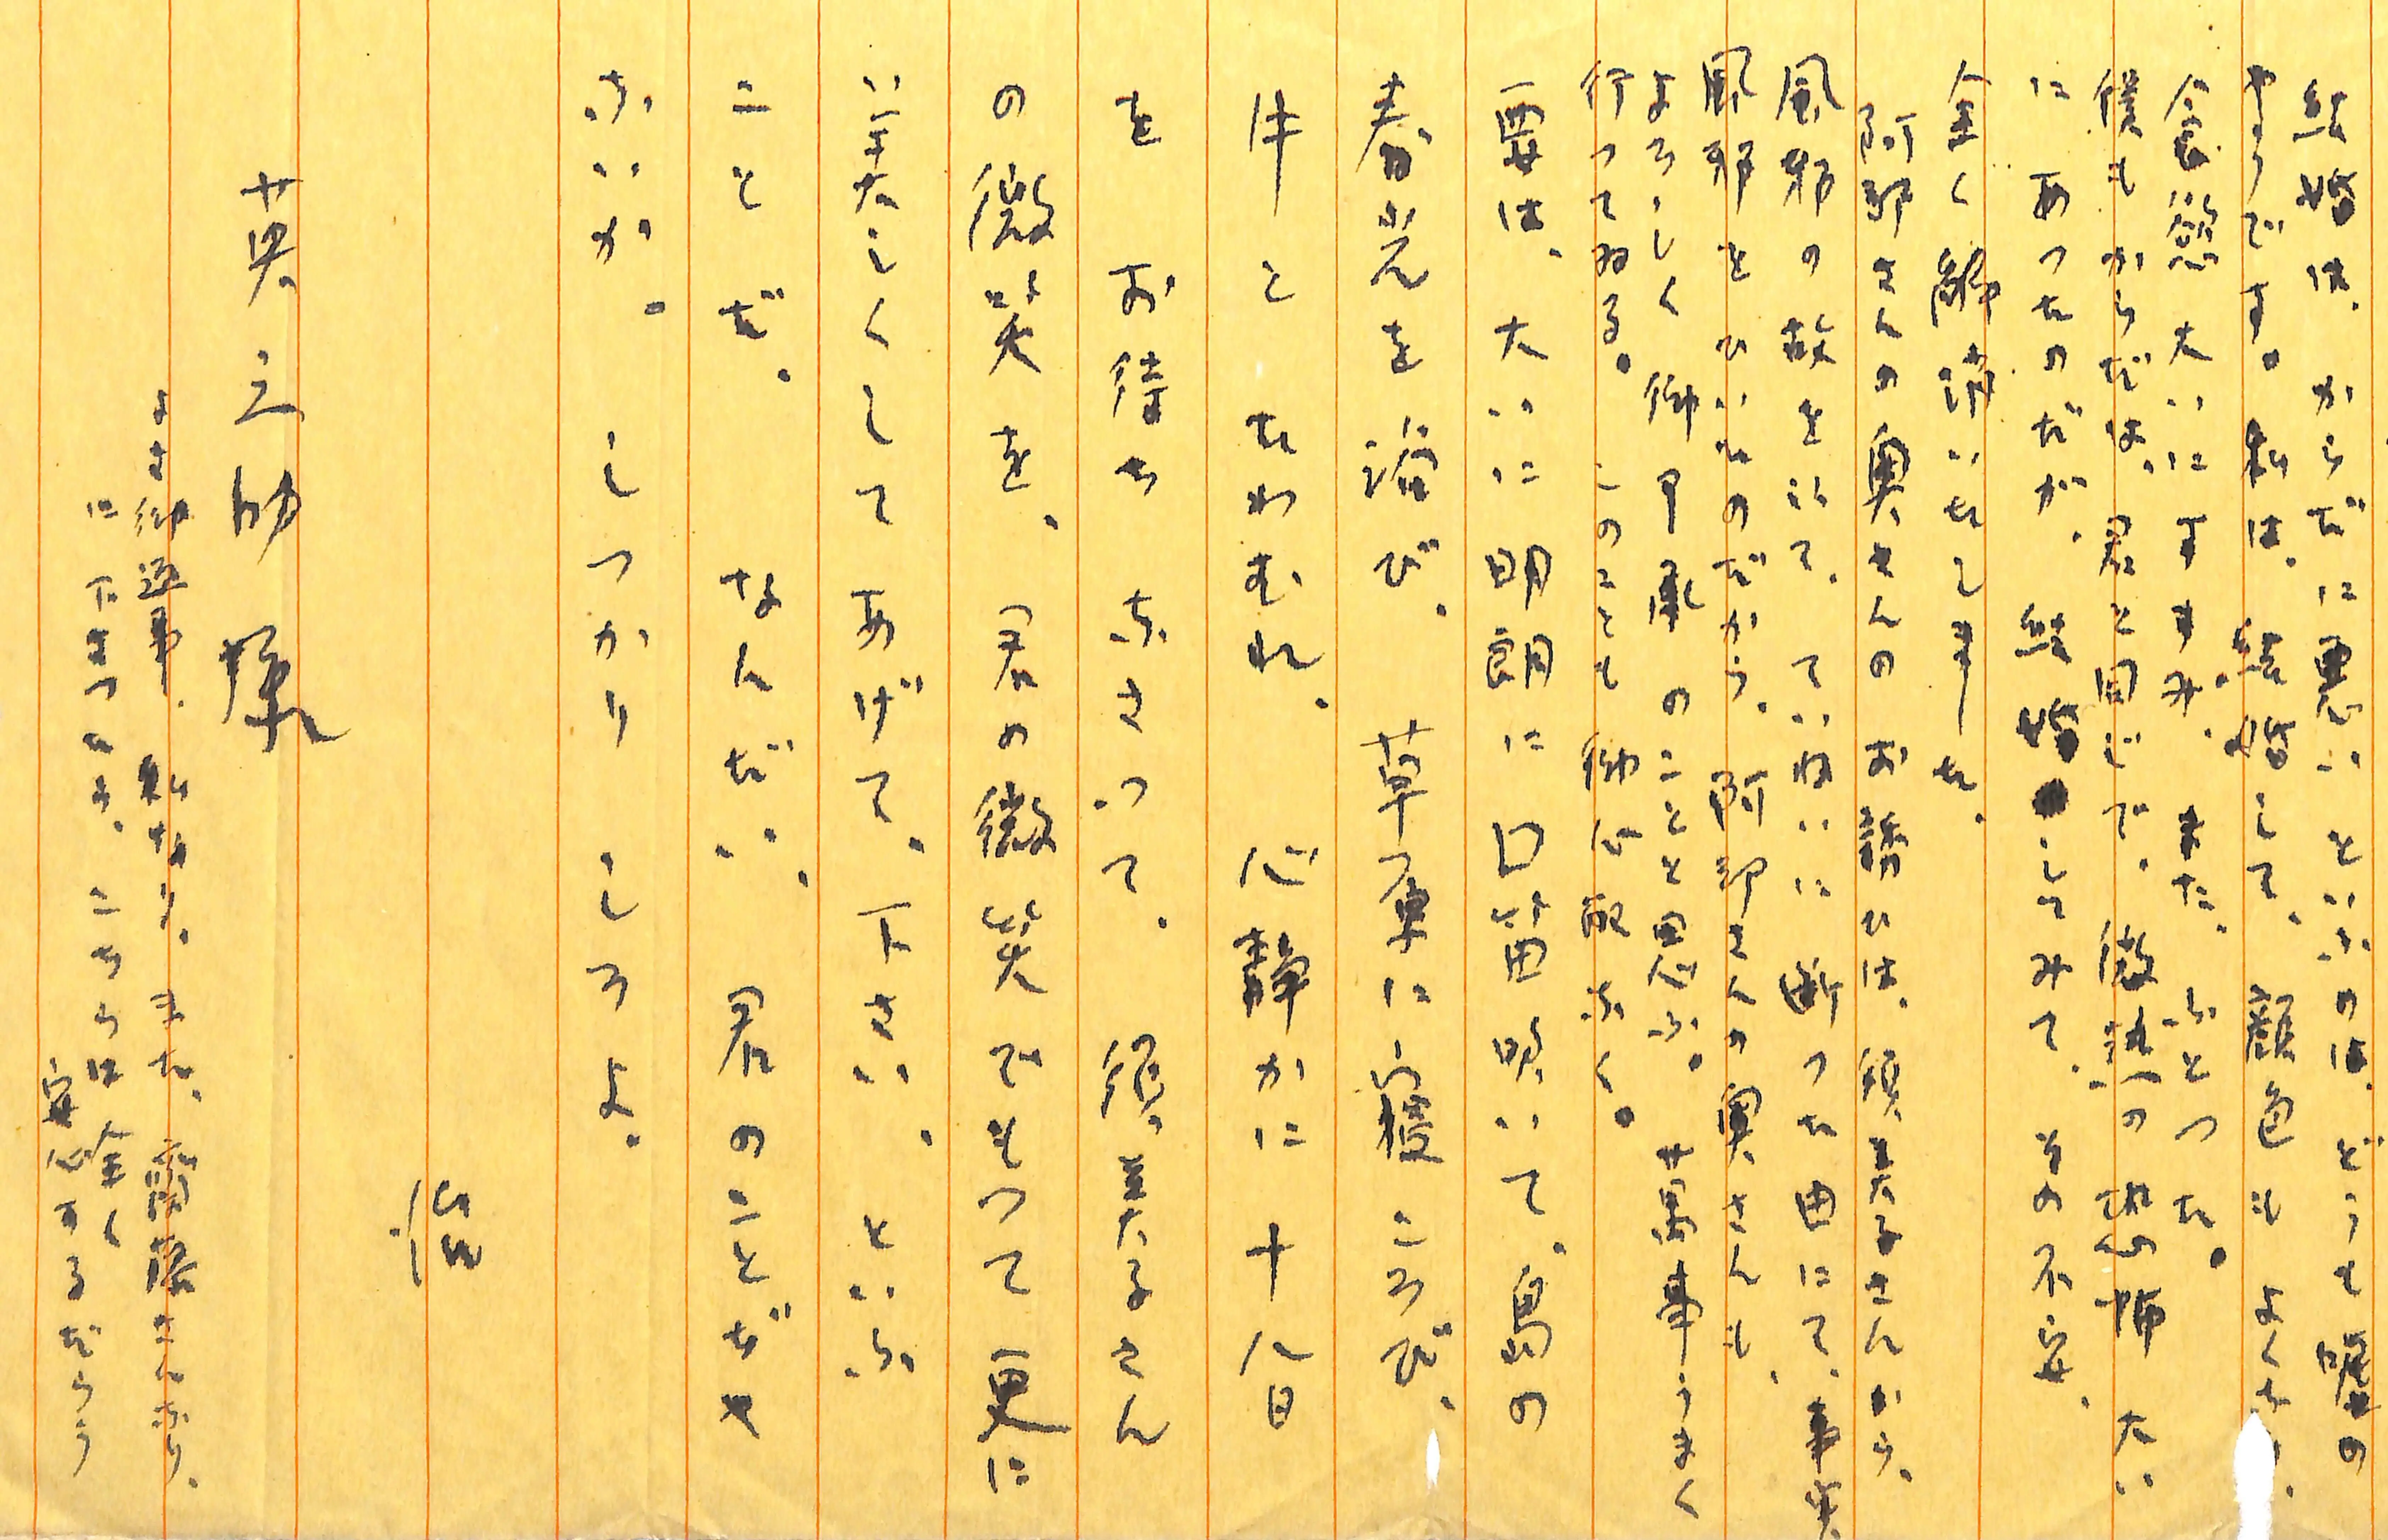 結婚は、からだに悪いといふのは、どうも嘘の
やうです。私は、結婚して、顔色もよくなり、
食慾大いにすすみ、また、ふとつた。
僕もからだは、君と同じで、微熱の恐怖大い
にあつたのだが、結婚してみて、その不安、
全く解消いたしました。
阿部さんの奥さんのお話は、須美子さんから、
風邪の故をにて、ていねいに断つた由にて、事実
風邪をひいたのだから、阿部さんの奥さんも、
よろしく御申訳のことと思ふ。萬事うまく
行つてゐる。このことも御安心下さい。
要は、大いに明朗に口笛吹いて、島の
春光を浴び、草原に寝ころび、
牛とたわむれ、心静かに十八日
をお待ち下さつて、須美子さん
の微笑を、君の微笑でもつて更に
美しくしてあげて、下さい、といふ
ことだ。なんだい、君のことぢや
ないか。しつかりしろよ。
治
英之助様
なほ御返事、私なら、また、齋藤さんなら、
に下さつても、こちらは全く
安心するだらう